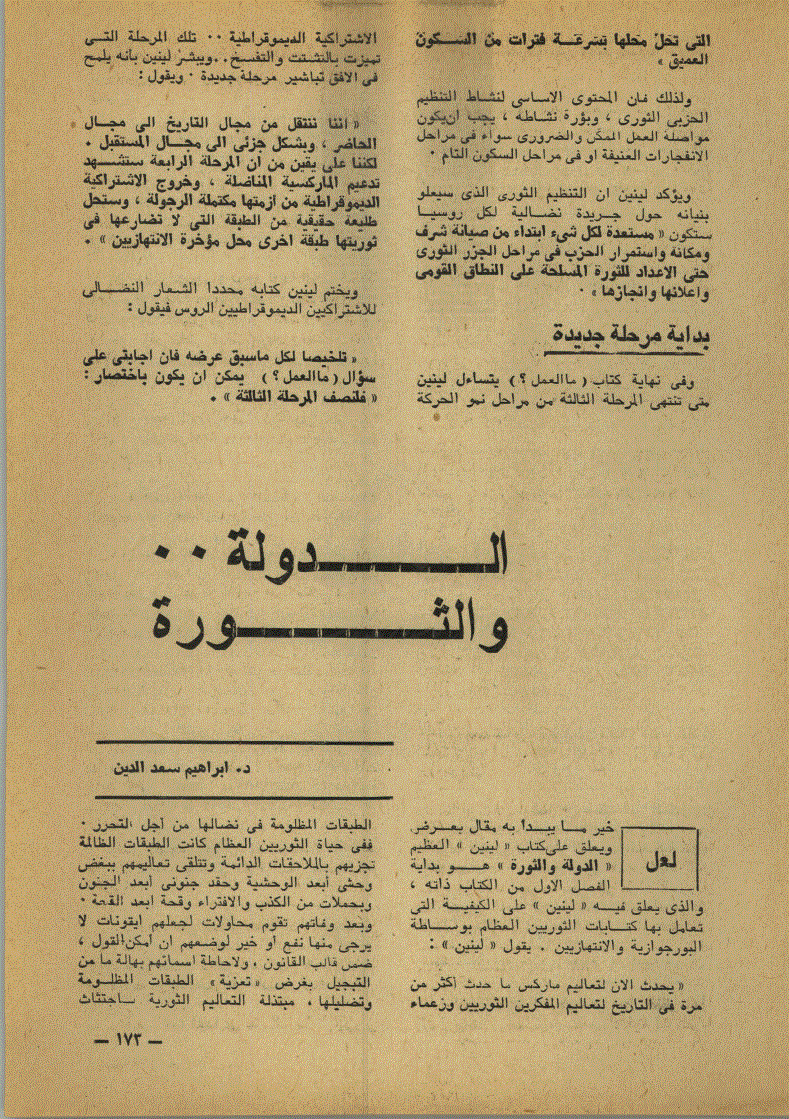 التى تحل محلها بسرعة فترات من السكون
العميق »
ولذلك فان المحتوى الاساسى لنشاط التنظيم
الحزبى الثورى ، وبؤرة نشاطه ، يجب أن يكون
مواصلة العمل الممكن والضرورى سواء فى مراحل
الانفجارات العنيفة او فى مراحل السكون التام ٠
ويؤكد لينين ان التنظيم الثورى الذى سيعلو
بنيانه حول جريدة نضالية لكل روسيا
ستكون « مستعدة لكل شىء ابتداء من صيانة شرف
ومكانة واستمرار الحزب فى مراحل الجزر الثورى
حتى الاعداد للثورة المسلحة على النطاق القومى
واعلانها وانجازها » ٠
بداية مرحلة جديدة
وفى نهاية كتاب ( ما العمل ؟ ) يتساءل لينين
متى تنتهى المرحلة الثالثة من مراحل نمو الحركة
الاشتراكية الديموقراطية ٠٠ تلك المرحلة التى
تميزت بالتشتت والتفسخ ٠٠ ويبشر لينين بأنه يلمح
فى الافق تباشير مرحلة جديدة ٠ ويقول :
« اننا ننتقل من مجال التاريخ الى مجال
الحاضر ، وبشكل جزئى الى مجال المستقبل ٠
لكننا على يقين من ان المرحلة الرابعة ستشهد
تدعيم الماركسية المناضلة ، وخروج الاشتراكية
الديموقراطية من ازمتها مكتملة الرجولة ، وستحل
طليعة حقيقية من الطبقة التى لا تضارعها فى
ثوريتها طبقة اخرى محل مؤخرة الانتهازيين » ٠
ويختم لينين كتابه محددا الشعار النضالى
للاشتراكيين الديموقراطيين الروس فيقول :
« تلخيصا لكل ماسبق عرضه فان اجابتى على
سؤال ( ما العمل ؟ ) يمكن ان يكون باختصار :
« فلنصف المرحلة الثالثة » ٠
الدولة ٠٠
والثورة
د٠ ابراهيم سعد الدين
لعل
خير ما يبدأ به مقال يعرض
ويعلق على كتاب « لينين » العظيم
« الدولة والثورة » هو بداية
الفصل الاول من الكتاب ذاته ،
والذى يعلق فيه « لينين » على الكيفية التى
تعامل بها كتابات الثوريين العظام بوساطة
البورجوازية والانتهازيين ٠ يقول « لينين » :
« يحدث الان لتعاليم ماركس ما حدث أكثر من
مرة فى التاريخ لتعاليم المفكرين الثوريين وزعماء
الطبقات المظلومة فى نضالها من أجل التحرر ٠
ففى حياة الثوريين العظام كانت الطبقات الظالمة
تجزيهم بالملاحقات الدائمة وتتلقى تعاليمهم ببغض
وحشى أبعد الوحشية وحقد جنونى أبعد الجنون
وبحملات من الكذب والافتراء وقحة ابعد القحة ٠
وبعد وفاتهم تقوم محاولات لجعلهم ايقونات لا
يرجى منها نفع أو خير لوضعهم ان أمكن القول ،
ضمن قالب القانون ، ولاحاطة اسمائهم بهالة ما من
التبجيل بغرض « تعزية » الطبقات المظلومة
وتضليلها ، مبتذلة التعاليم الثورية ساجتثاث
— ١٧٣ —